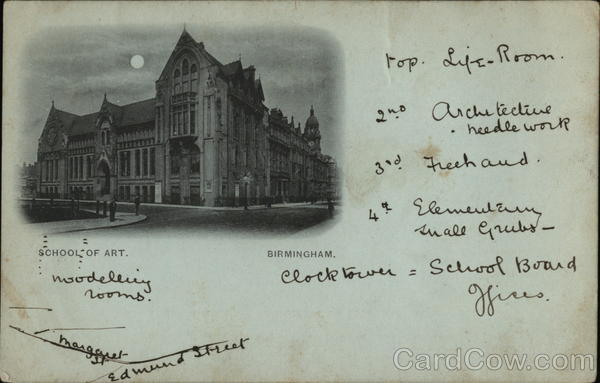 top. Life-Room.
2nd Architective
. needlework
3rd Freehand.
4th Elementary
small Grubs-
SCHOOL OF ART.
BIRMINGHAM.
Clocktower = School Board
Offices.
modelling
rooms.
Margaret
St
Edmund Street
CardCow.com